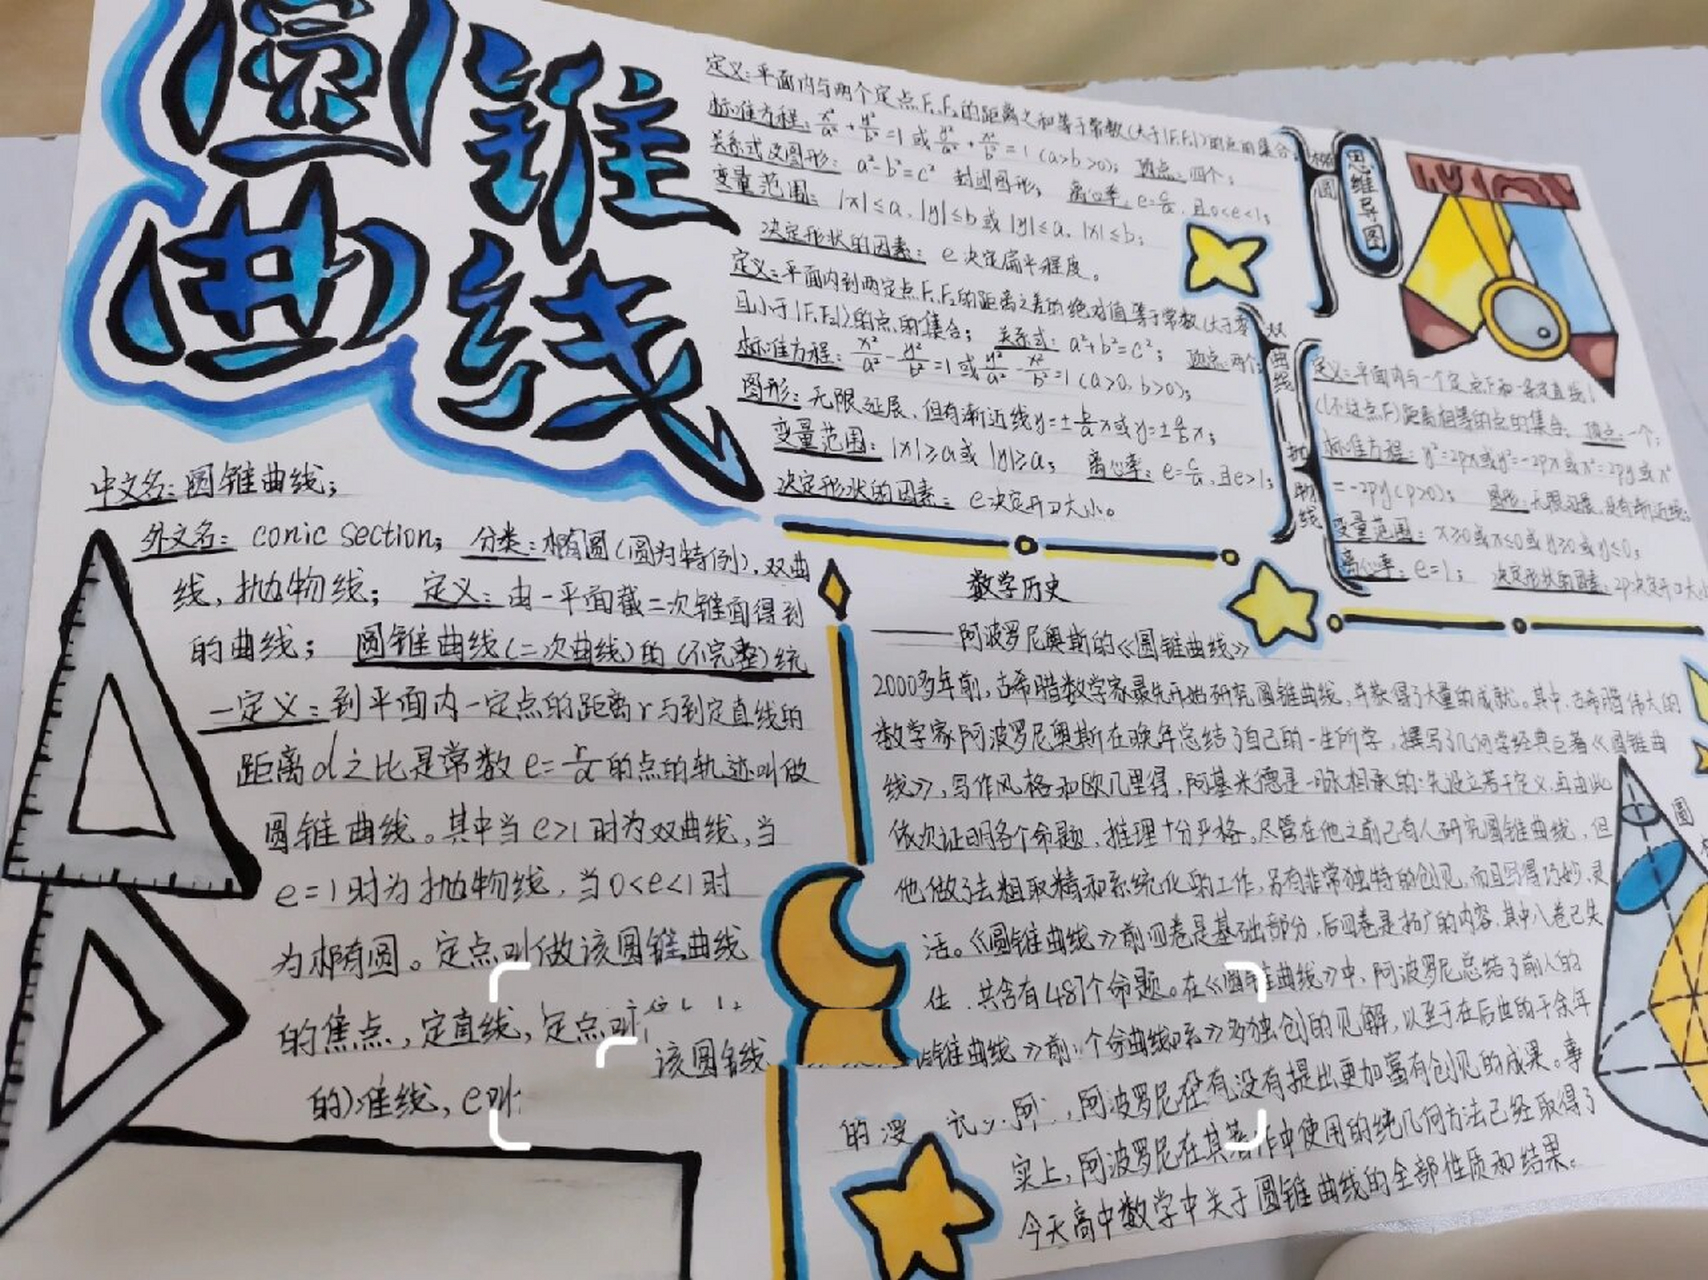 圆锥
曲线
中文名：圆锥曲线；
外文名：conic section；分类：椭圆（圆为特例），双曲
线，抛物线；定义：由一平面截二次锥面得到
的曲线；圆锥曲线（二次曲线）的（不完整）统
一定义：到平面内一定点的距离r与到定直线的
距离d之比是常数e=r/d的点的轨迹叫做
圆锥曲线。其中当e>1时为双曲线，当
e=1时为抛物线，当0<e<1时
为椭圆。定点叫做该圆锥曲线
的焦点，定直线，定点叫
该圆锥线
的)准线，e叫
定义：平面内与两个定点F₁、F₂的距离之和等于常数（大于|F₁F₂|）的点的集合；
标准方程：x²/a²+y²/b²=1或y²/a²+x²/b²=1（a>b>0）；顶点：四个；
关系式及图形：a²-b²=c² 封闭图形；离心率：e=c/a，且0<e<1；
变量范围：|x|≤a，|y|≤b或|y|≤a，|x|≤b；
决定形状的因素：e决定扁平程度。
椭圆
思维导图
定义：平面内到两定点F₁、F₂的距离之差的绝对值等于常数（大于零
且小于|F₁F₂|）的点的集合；关系式：a²+b²=c²；顶点：两个；
标准方程：x²/a²-y²/b²=1或y²/a²-x²/b²=1（a>0，b>0）；
图形：无限延展，但有渐近线y=±b/a x或y=±a/b x；
变量范围：|x|≥a或|y|≥a；离心率：e=c/a，且e>1；
决定形状的因素：e决定开口大小。
双曲线
抛物线
定义：平面内与一个定点F和一条定直线l
（l不过点F）距离相等的点的集合；顶点：一个；
标准方程：y²=2px或y²=-2px或x²=2py或x²
=-2py（p>0）；图形：无限延展，没有渐近线；
变量范围：x≥0或x≤0或y≥0或y≤0；
离心率：e=1；决定形状的因素：2p决定开口大小
数学历史
——阿波罗尼奥斯的《圆锥曲线》
2000多年前，古希腊数学家最先开始研究圆锥曲线，并获得了大量的成就。其中，古希腊伟大的
数学家阿波罗尼奥斯在晚年总结了自己的一生所学，撰写了几何学经典巨著《圆锥曲
线》，写作风格和欧几里得，阿基米德是一脉相承的：先设立若干定义，再由此
依次证明各个命题，推理十分严格。尽管在他之前已有人研究圆锥曲线，但
他做了去粗取精和系统化的工作，另有非常独特的创见，而且写得巧妙、灵
活。《圆锥曲线》前四卷是基础部分，后四卷是扩广的内容，其中八卷已失
住，共含有487个命题。在《圆锥曲线》中，阿波罗尼总结了前人的
锥曲线》前 个命曲线 系》多独创的见解，以至于在后世的千余年
的漫 ，阿波罗尼在有没有提出更加富有创见的成果。事
实上，阿波罗尼在其著作中使用的纯几何方法已经取得了
今天高中数学中关于圆锥曲线的全部性质和结果。
圆